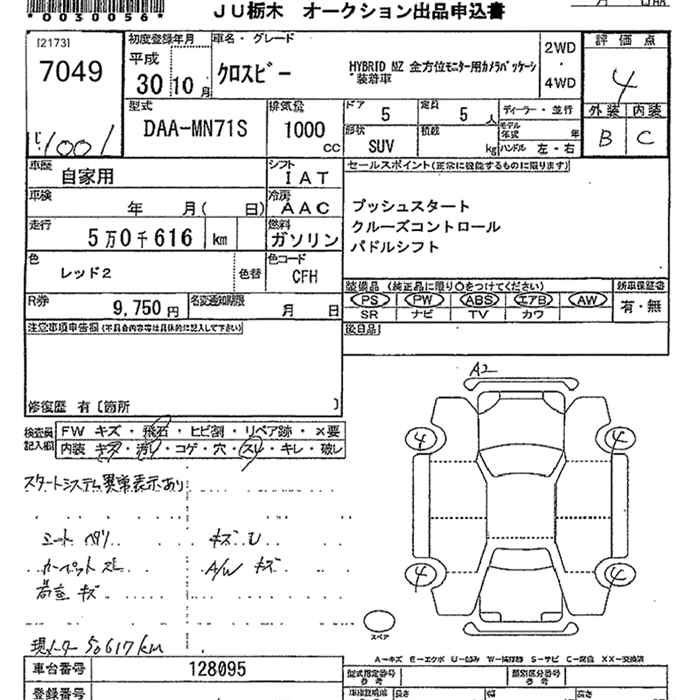 *0030056*
JU栃木 オークション出品申込書
[2173]
7049
初度登録年月
平成
30 10月
車名・グレード
クロスビー
HYBRID MZ 全方位モニター用カメラパッケージ装着車
2WD
・
4WD
評価点
4
外装 内装
B C
1001
型式
DAA-MN71S
排気量
1000
cc
ドア 5
定員 5 人
形状
SUV
積載
kg
ディーラー・並行
モデル年式 年
ハンドル 左・右
車歴
自家用
シフト
IAT
車検
年 月( 日)
冷房
AAC
走行
5万0千616 km
燃料
ガソリン
色
レッド2
色替
色コード
CFH
R券
9,750円
名変通知期限
月 日
セールスポイント(正常に機能するものに限ります)
プッシュスタート
クルーズコントロール
パドルシフト
装備品(純正品に限り○をつけてください)
PS PW ABS エアB AW
SR ナビ TV カワ
新車保証書
有・無
後日品
注意事項申告欄(不具合内容等は具体的に記入して下さい)
修復歴 有〔箇所 〕
検査員記入欄
FW キズ・飛石・ヒビ割・リペア跡・×要
内装 キズ・汚れ・コゲ・穴・スレ・キレ・破レ
スタートシステム異常表示あり
シート ヘタリ
キズU
カーペット スレ
A/W キズ
荷室 キズ
現メーター 50617km
A2
4
4
4
4
スペア
A－キズ E－エクボ U－凹み W－補修跡 S－サビ C－腐食 XX－交換済
車台番号
128095
登録番号
型式指定番号
参考
類別区分番号
参考
長さ
幅
高さ